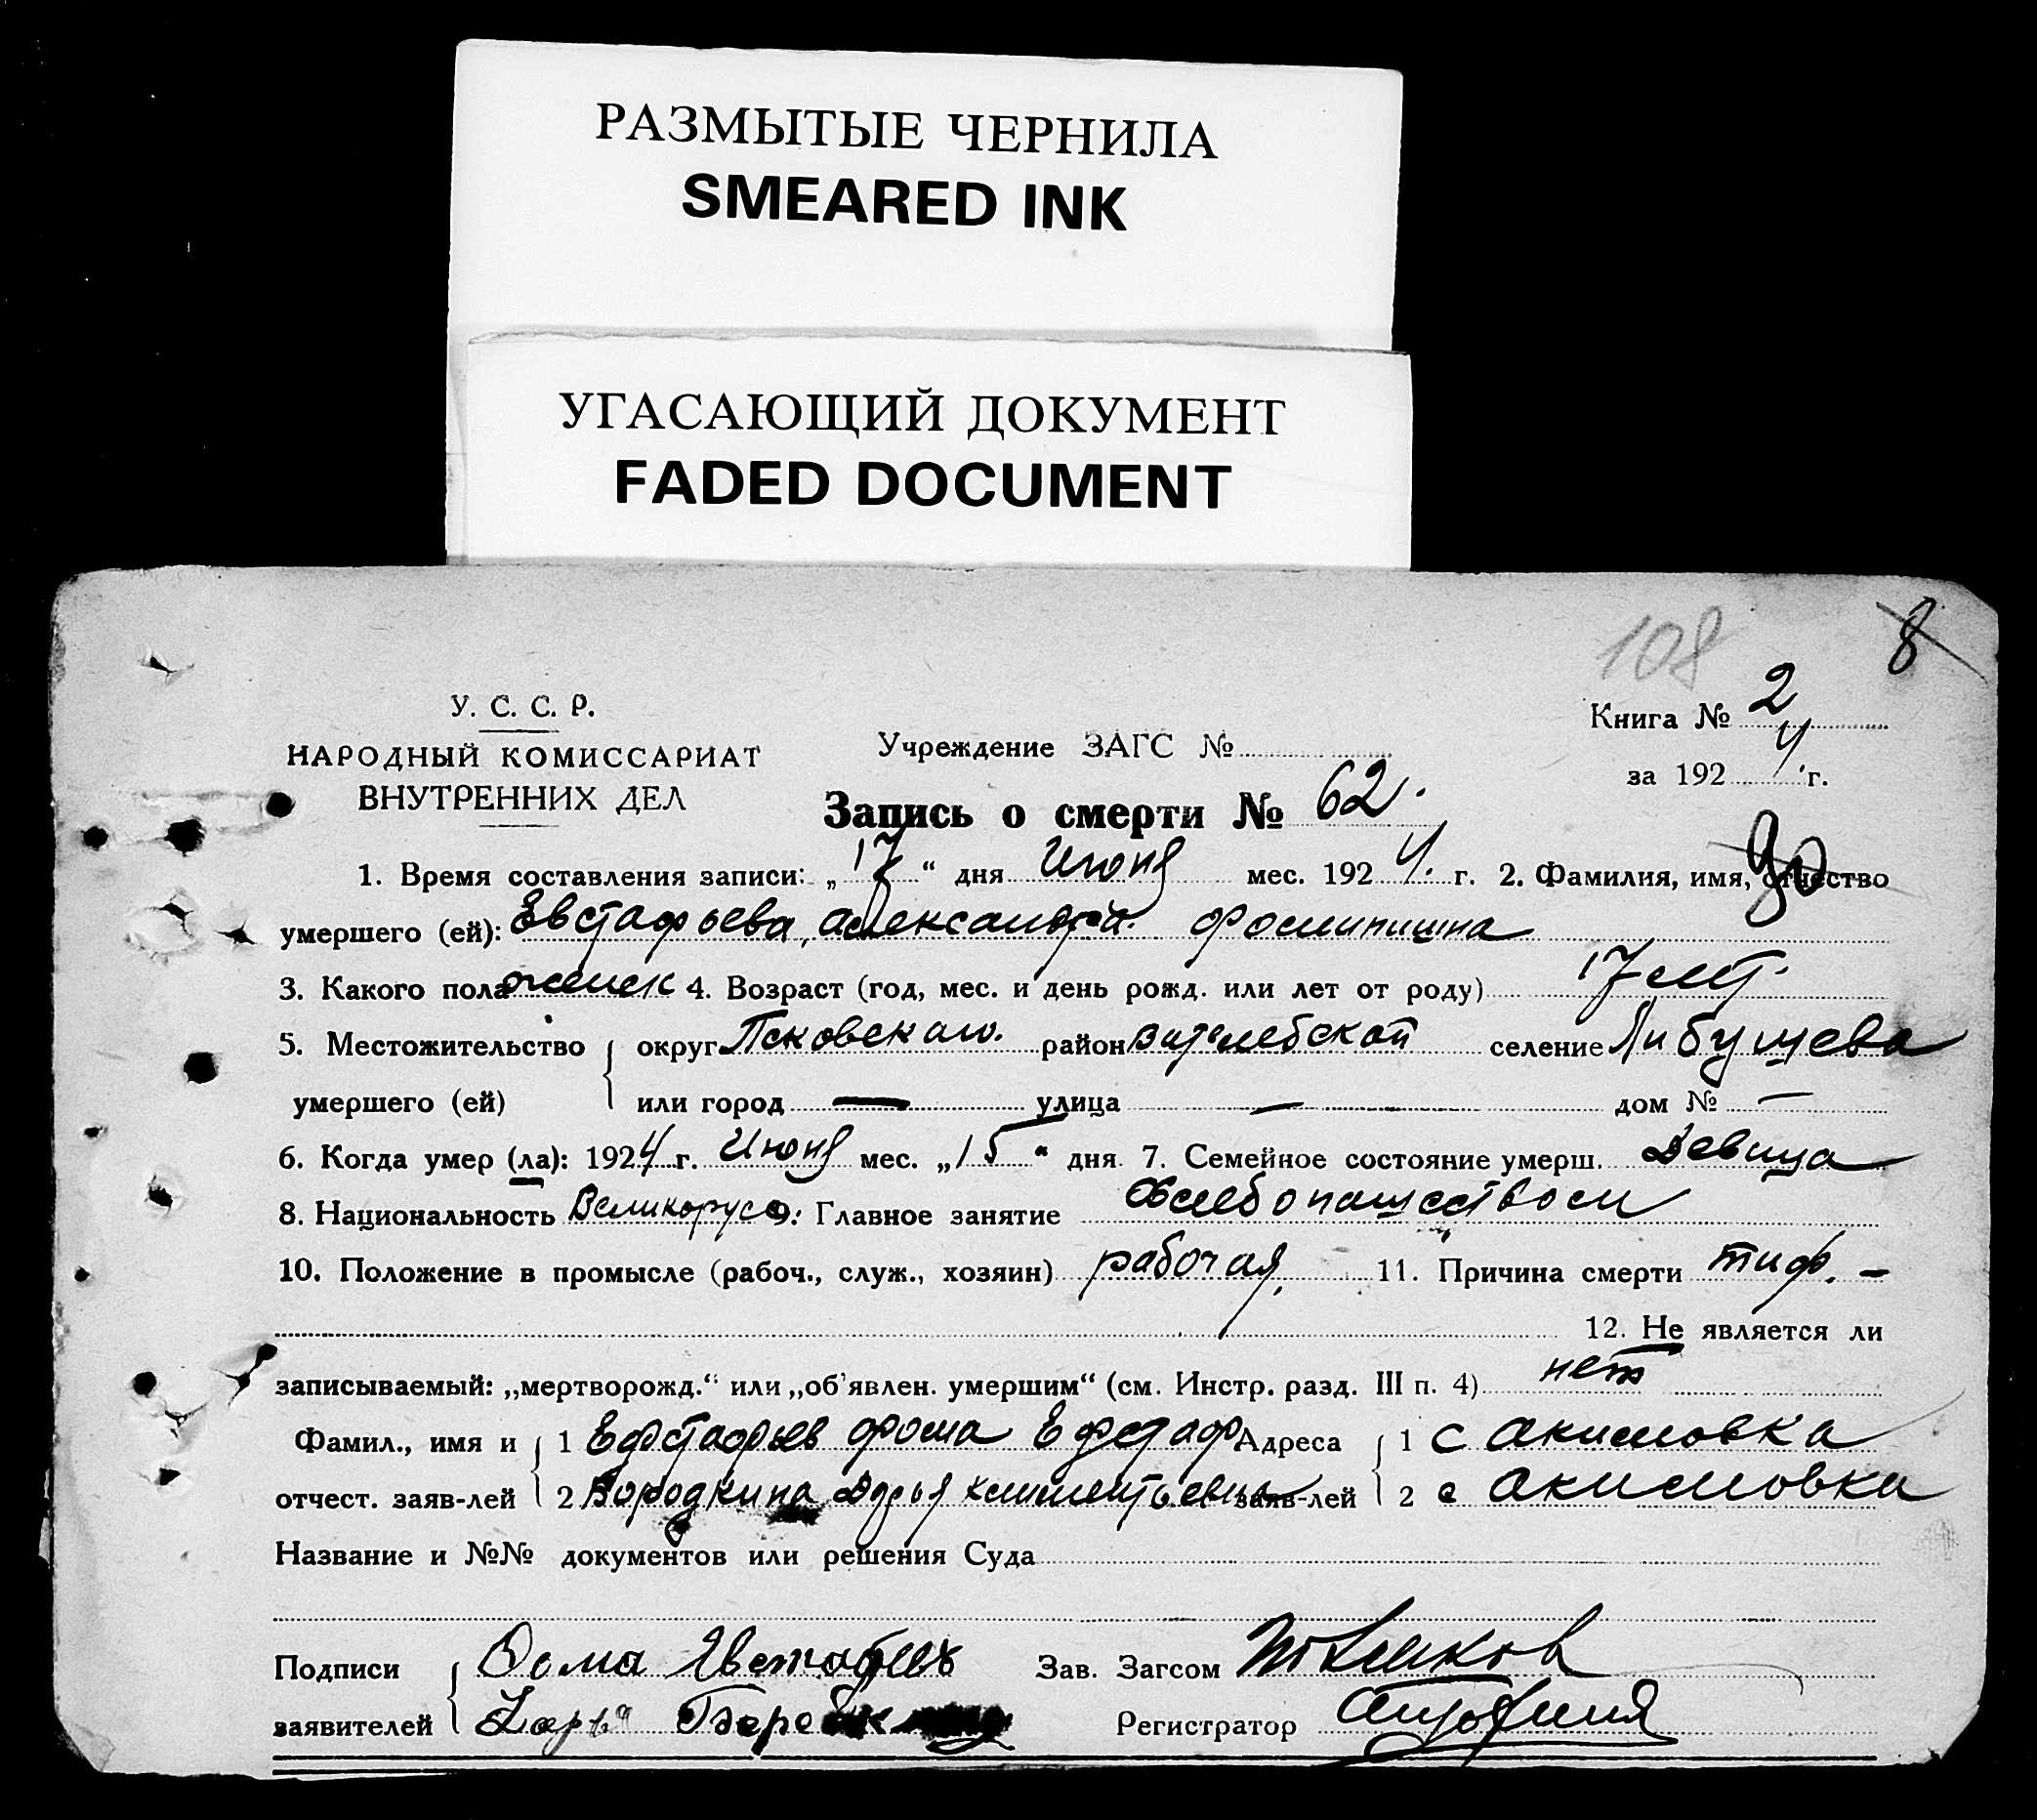 РАЗМЫТЫЕ ЧЕРНИЛА
SMEARED INK
УГАСАЮЩИЙ ДОКУМЕНТ
FADED DOCUMENT
108 8
У. С. С. Р.
НАРОДНЫЙ КОМИССАРИАТ
ВНУТРЕННИХ ДЕЛ
Учреждение ЗАГС №
Книга № 2
за 1924 г.
Запись о смерти № 62.
1. Время составления записи: „17“ дня Июня мес. 1924. г. 2. Фамилия, имя, отчество
умершего (ей): Евстафьева, александра. фоминишна
3. Какого пола женск 4. Возраст (год, мес. и день рожд. или лет от роду) 17 лет.
5. Местожительство округ Псковскаго. район витлебской селение Либущева
умершего (ей) или город — улица — дом № —
6. Когда умер (ла): 1924 г. Июня мес. „15“ дня 7. Семейное состояние умерш. Девица
8. Национальность Великорусс 9. Главное занятие хлебопашеством
10. Положение в промысле (рабоч., служ., хозяин) рабочая, 11. Причина смерти тиф. –
12. Не является ли
записываемый: „мертворожд.“ или „об'явлен. умершим“ (см. Инстр. разд. III п. 4) нет
Фамил., имя и 1 Ефстафьев фома Ефстаф Адреса 1 с акимовка
отчест. заяв-лей 2 Бородкина Дарья климентьевна заяв-лей 2 с акимовка
Название и №№ документов или решения Суда
Подписи Фома Явстафьев Зав. Загсом
заявителей Дарья Регистратор